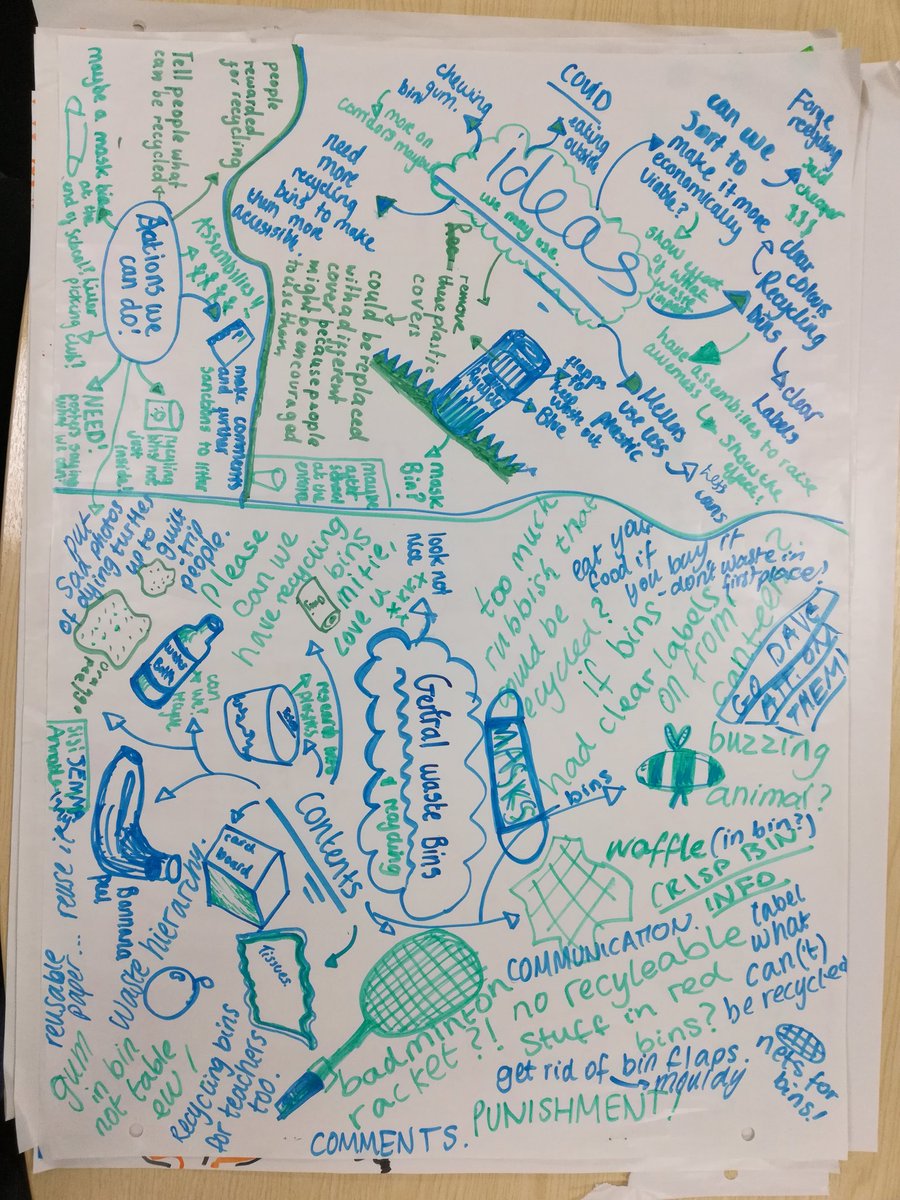 people
rewarded
for recycling
Tell people what
can be recycled
maybe a mask bin
at the
end of school?
Actions we
can do!
Assemblies!!
make comments
and
sanctions to litter
NEED!
chewing
gum
bin
more on
corridors maybe
COVID
eating
outside
ideas
we may use.
need
more
recycling
bins to make
them more
accessible.
can we
sort to
make it more
economically
viable?
Forge
recycling
said
cheaper
$$$
show year
of what
waste
clear colours
Recycling
bins
clear
Labels
have assemblies to raise
awareness
show the
remove
these plastic
covers
could be replaced
with a different
cover because people
might be encouraged
to use them
flaps
to
keep
waste out
Blue
Mellors
use less
plastic
less
cans
mask
Bin?
maybe
at
school
put
sad photos
of dying turtles
up to
guilt
trip
people.
Please
can we
have recycling
bins
mitie,
love u
xxxx
look not
nice
General waste Bins
& recycling
too much
rubbish that
could be
recycled?
eat your
food if
you buy it
- don't waste in
first place?
if bins
had clear labels
on from
canteen?
GO DAVE
ATTON
THEM!
MASKS
bins
buzzing
animal?
waffle (in bin?)
CRISP BIN
INFO
label
what
can(t)
be recycled
COMMUNICATION.
no recyleable
stuff in red
bins?
badminton
racket?!
get rid of bin flaps.
mouldy
nets for
bins!
PUNISHMENT!
COMMENTS.
Contents
card
board
tissues
Bannana
peel
can
we?
plastics
reuse it.
reusable
paper...
waste hierarchy.
gum
in bin
not table
ew!
Recycling bins
for teachers
too.